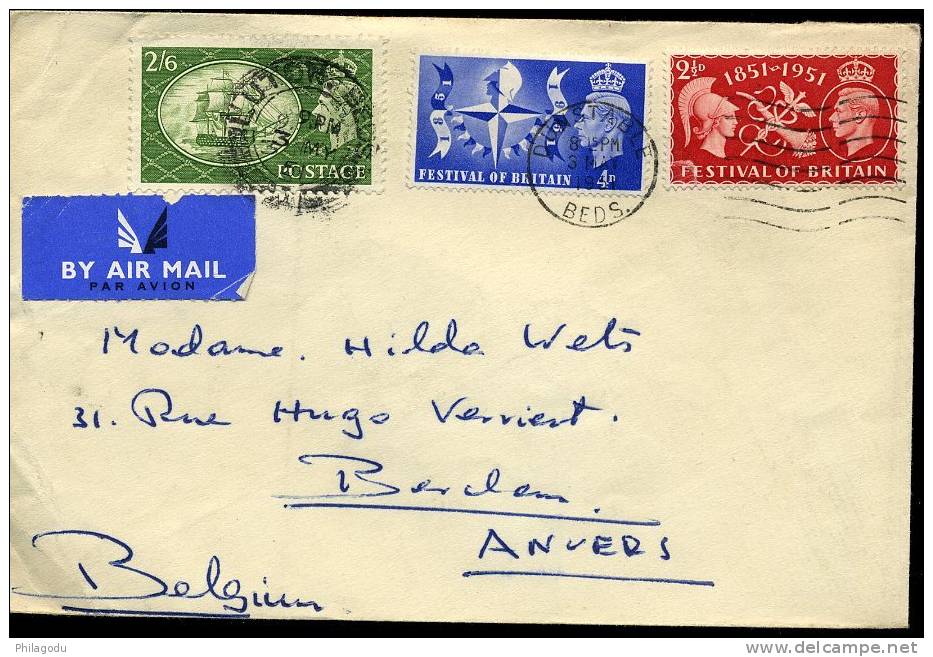 2/6
POSTAGE
1851
1951
FESTIVAL OF BRITAIN 4D
2½D
1851-1951
FESTIVAL OF BRITAIN
DUNSTABLE
8-15 PM
3 MAY
1951
BEDS.
BY AIR MAIL
PAR AVION
Madame. Hilda Wets
31. Rue Hugo Verriest.
Berchem
ANVERS
Belgium
Philagodu
www.delcampe.net